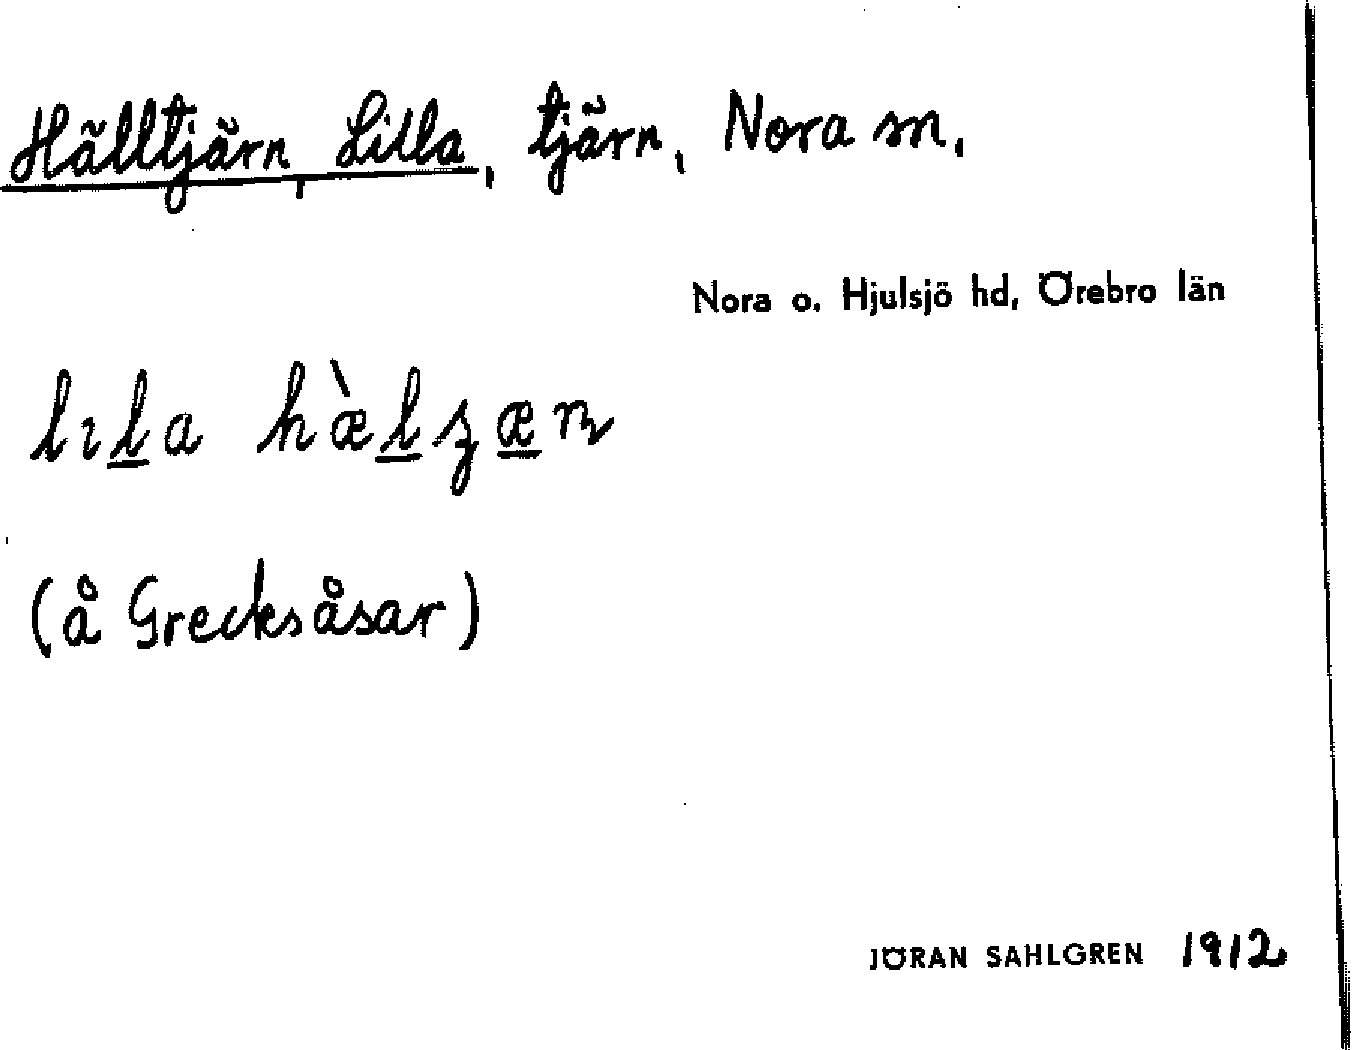 Hälltjärn, Lilla, tjärn, Nora sn,
Nora o. Hjulsjö hd, Örebro län
lıl̲a hæ̀l̲ʒæ̲ɳ
(å Grecksåsar)
JÖRAN SAHLGREN 1912